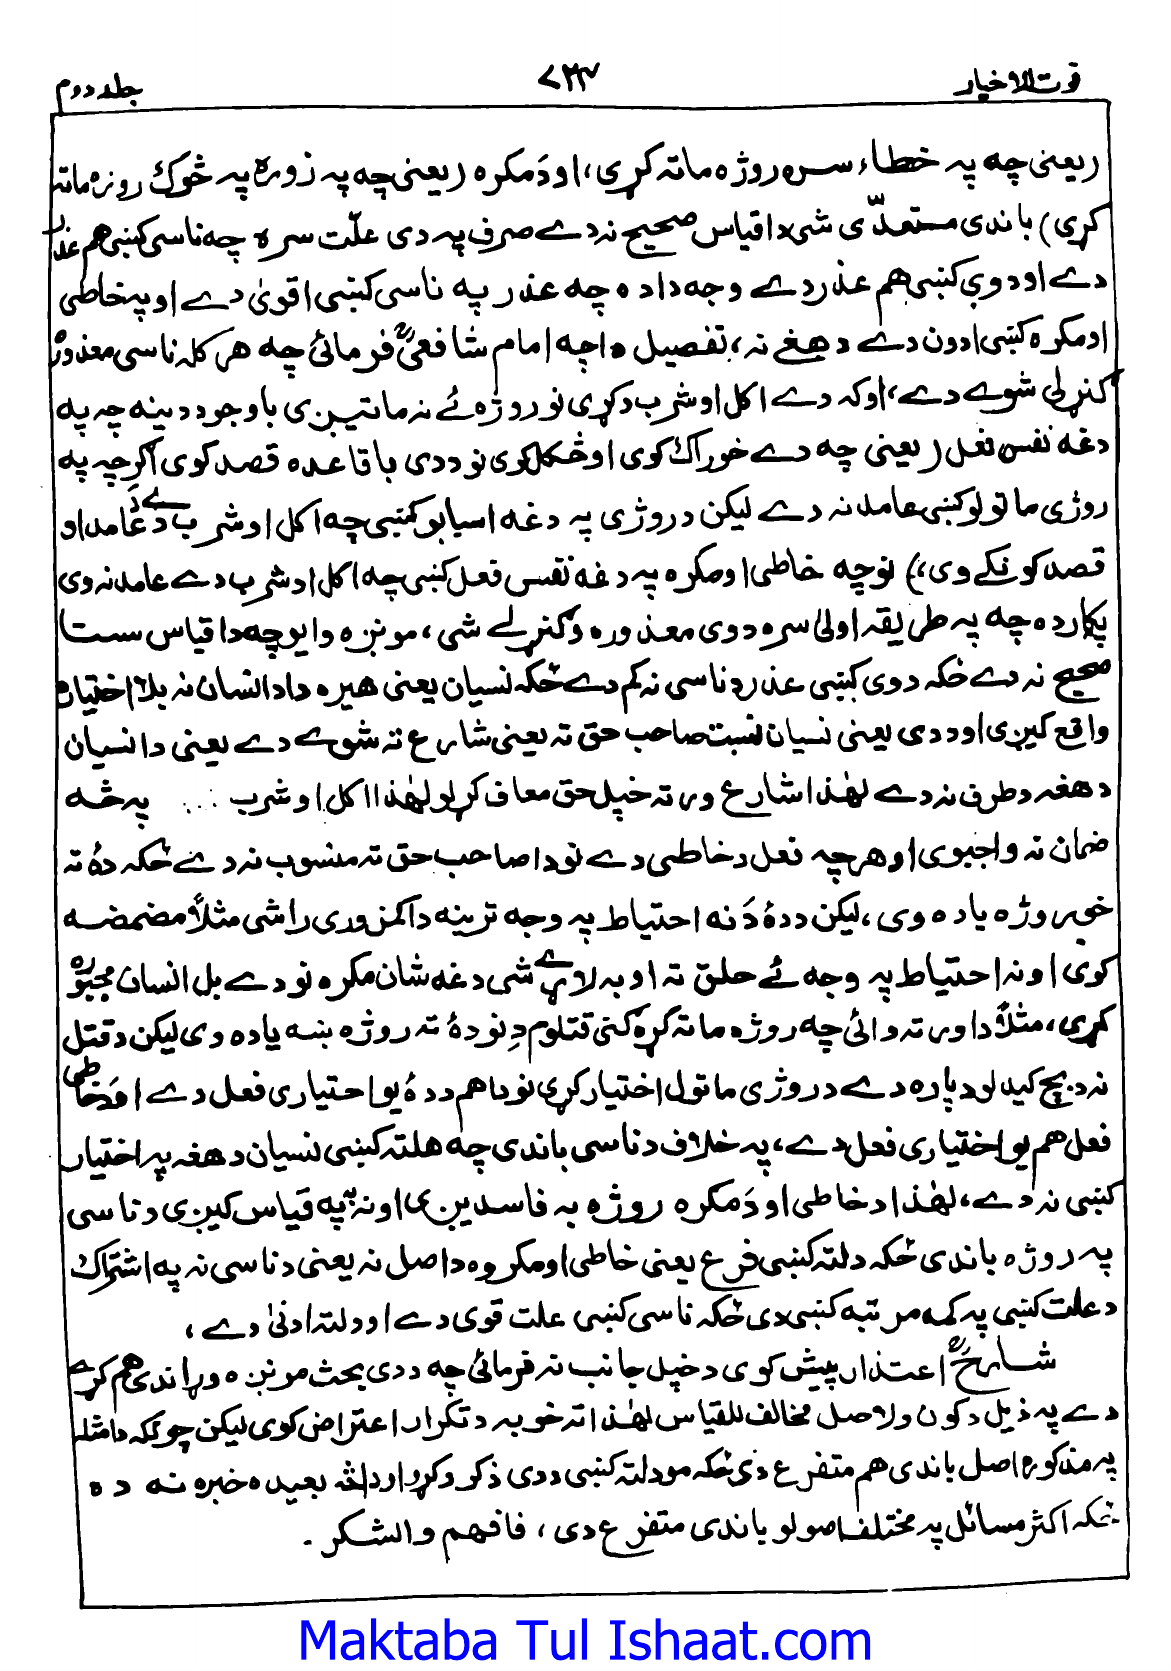 قوت الاخیار ۷۳۳ جلد دوم
(یعنی چه په خطاء سره روژه ماته کړی، او دَ مکره (یعنی چه په زوره په څوک روژه ماته
کړی) باندی متعدّی شی دا قیاس صحیح نه دے صرف په دی علّت سره چه ناسی کښی هم عذر
دے او دوی کښی هم عذر دے وجه داده چه عذر په ناسی کښی اقویٰ دے او په خاطی
او مکره کښی ادون دے دهغے نه، تفصیل واچه امام شافعیؒ فرمائی چه هر کله ناسی معذور
کنړلی شوے دے، اوکه دے اکل او شرب دکړی نو روژه ئے نه ماتیږی باوجود دینه چه په
دغه نفس فعل (یعنی چه دے خوراک کوی او څکل کوی نو ددی باقاعده قصد کوی اگرچه په
روژی ماتولو کښی عامد نه دے لیکن د روژی په دغه اسبابو کښی چه اکل او شرب دے دَے عامد او
قصد کونکے وی،) نو چه خاطی او مکره په دغه نفس فعل کښی چه اکل او شرب دے عامد نه وی
پکار ده چه په طریقه اولیٰ سره دوی معذوره وکنړلے شی، مونږه وایو چه دا قیاس ستا
صحیح نه دے ځکه دوی کښی عذر د ناسی نه کم دے ځکه نسیان یعنی هیره دا د انسان نه بلا اختیاره
واقع کیږی او ددی یعنی نسیان نسبت صاحب حق ته یعنی شارع ته شوے دے یعنی دا نسیان
دهغه د طرف نه دے لهٰذا شارع ورته خپل حق معاف کړلو لهٰذا اکل او شرب ... په څه
ضمان نه واجبوی او هرچه فعل د خاطی دے نو دا صاحب حق ته منسوب نه دے ځکه دهٔ ته
خو روژه یاده وی، لیکن ددهٔ دَ نه احتیاط په وجه ترینه دا کمزوری راشی مثلاً مضمضه
کوی او نه احتیاط په وجه ئے حلق ته اوبه لاړے شی دغه شان مکره نو دے بل انسان مجبوره
کړی، مثلاً دا ورته وائی چه روژه ماته کړه کنی قتلوم دِ نو دهٔ ته روژه ښه یاده وی لیکن د قتل
نه د بچ کیدلو دپاره دے د روژی ماتول اختیار کړی نو دا هم ددهٔ یو اختیاری فعل دے او د خاطی
فعل هم یو اختیاری فعل دے، په خلاف د ناسی باندی چه هلته کښی نسیان دهغه په اختیار
کښی نه دے، لهٰذا د خاطی او دَ مکره روژه به فاسدیږی او نه به په قیاس کیږی د ناسی
په روژه باندی ځکه دلته کښی فرع یعنی خاطی او مکره د اصل نه یعنی د ناسی نه په اشتراک
د علت کښی په کمه مرتبه کښی دی ځکه ناسی کښی علت قوی دے او دلته ادنیٰ دے،
شارحؒ اعتذار پیش کوی د خپل جانب نه فرمائی چه ددی بحث مونږه وړاندی هم کړے
دے په ذیل د کون الاصل مخالف للقیاس لهٰذا ته خو به د تکرار اعتراض کوی لیکن چونکه دا مثله
په مذکوره اصل باندی هم متفرع دی ځکه مو دلته کښی ددی ذکر وکړو او دا څه بعیده خبره نه ده
ځکه اکثر مسائل په مختلف اصولو باندی متفرع دی، فافهم والشکر.
Maktaba Tul Ishaat.com